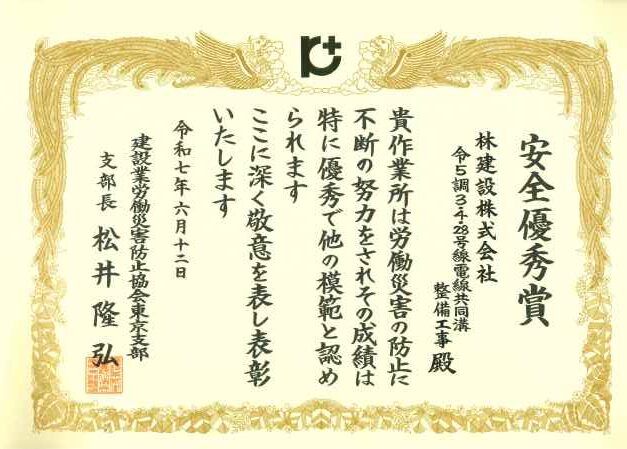 安全優秀賞
林建設株式会社
令5調3・4・28号線電線共同溝
整備工事 殿
貴作業所は労働災害の防止に
不断の努力をされその成績は
特に優秀で他の模範と認め
られます
ここに深く敬意を表し表彰
いたします
令和七年六月十二日
建設業労働災害防止協会東京支部
支部長 松井隆弘